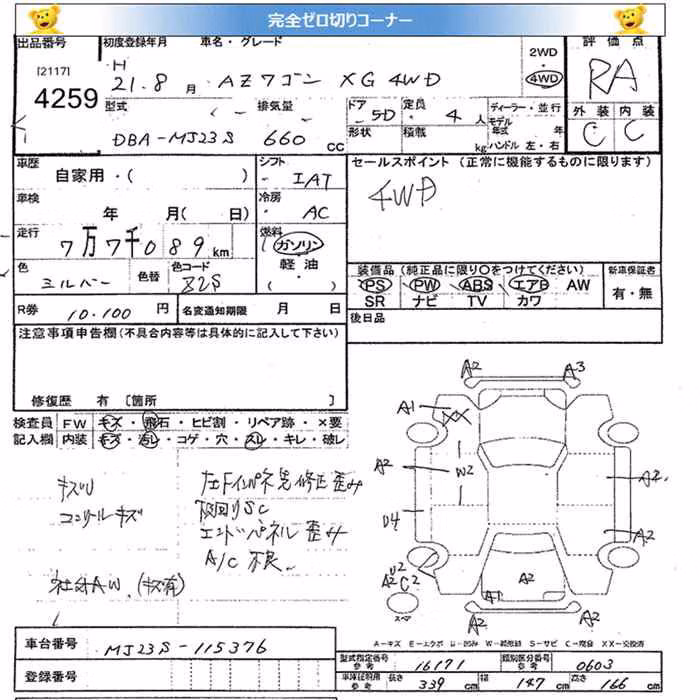 完全ゼロ切りコーナー
出品番号
[2117]
4259
初度登録年月 車名・グレード
H
21.8月 AZワゴン XG 4WD
2WD
4WD
評価点
RA
外装 内装
C C
型式 排気量
DBA-MJ23S 660 CC
ドア 5D 定員 4人
形状 積載 kg
ディーラー・並行
モデル年式 年
ハンドル 左・右
車歴
自家用・( )
シフト
IAT
車検
年 月( 日)
冷房
AC
走行
7万7千089km
燃料
ガソリン
軽油
色
シルバー 色替 色コード Z2S
R券 10.100円 名変通知期限 月 日
セールスポイント (正常に機能するものに限ります)
4WD
装備品(純正品に限り○をつけてください) 新車保証書
PS PW ABS エアB AW
SR ナビ TV カワ
有・無
後日品
注意事項申告欄(不具合内容等は具体的に記入して下さい)
修復歴 有 [箇所 ]
検査員 FW キズ・飛石・ヒビ割・リペア跡・×要
記入欄 内装 キズ・汚レ・コゲ・穴・スレ・キレ・破レ
キズU
コンソールキズ
社外AW.(キズ有)
左Fインパネ先修正歪み
下回りSC
エンドパネル歪み
A/C不良
A2 A3
A1 XX
A2 W2 A2
U4 A2
U2
A2 C2 A2
A1
スペア
A2 A2
A-キズ E-エクボ U-凹み W-補修跡 S-サビ C-腐食 XX-交換済
車台番号 MJ23S-115376
登録番号
型式指定番号 参考 16171 類別区分番号 参考 0603
車庫証明用 参考 長さ 339 cm 幅 147 cm 高さ 166 cm